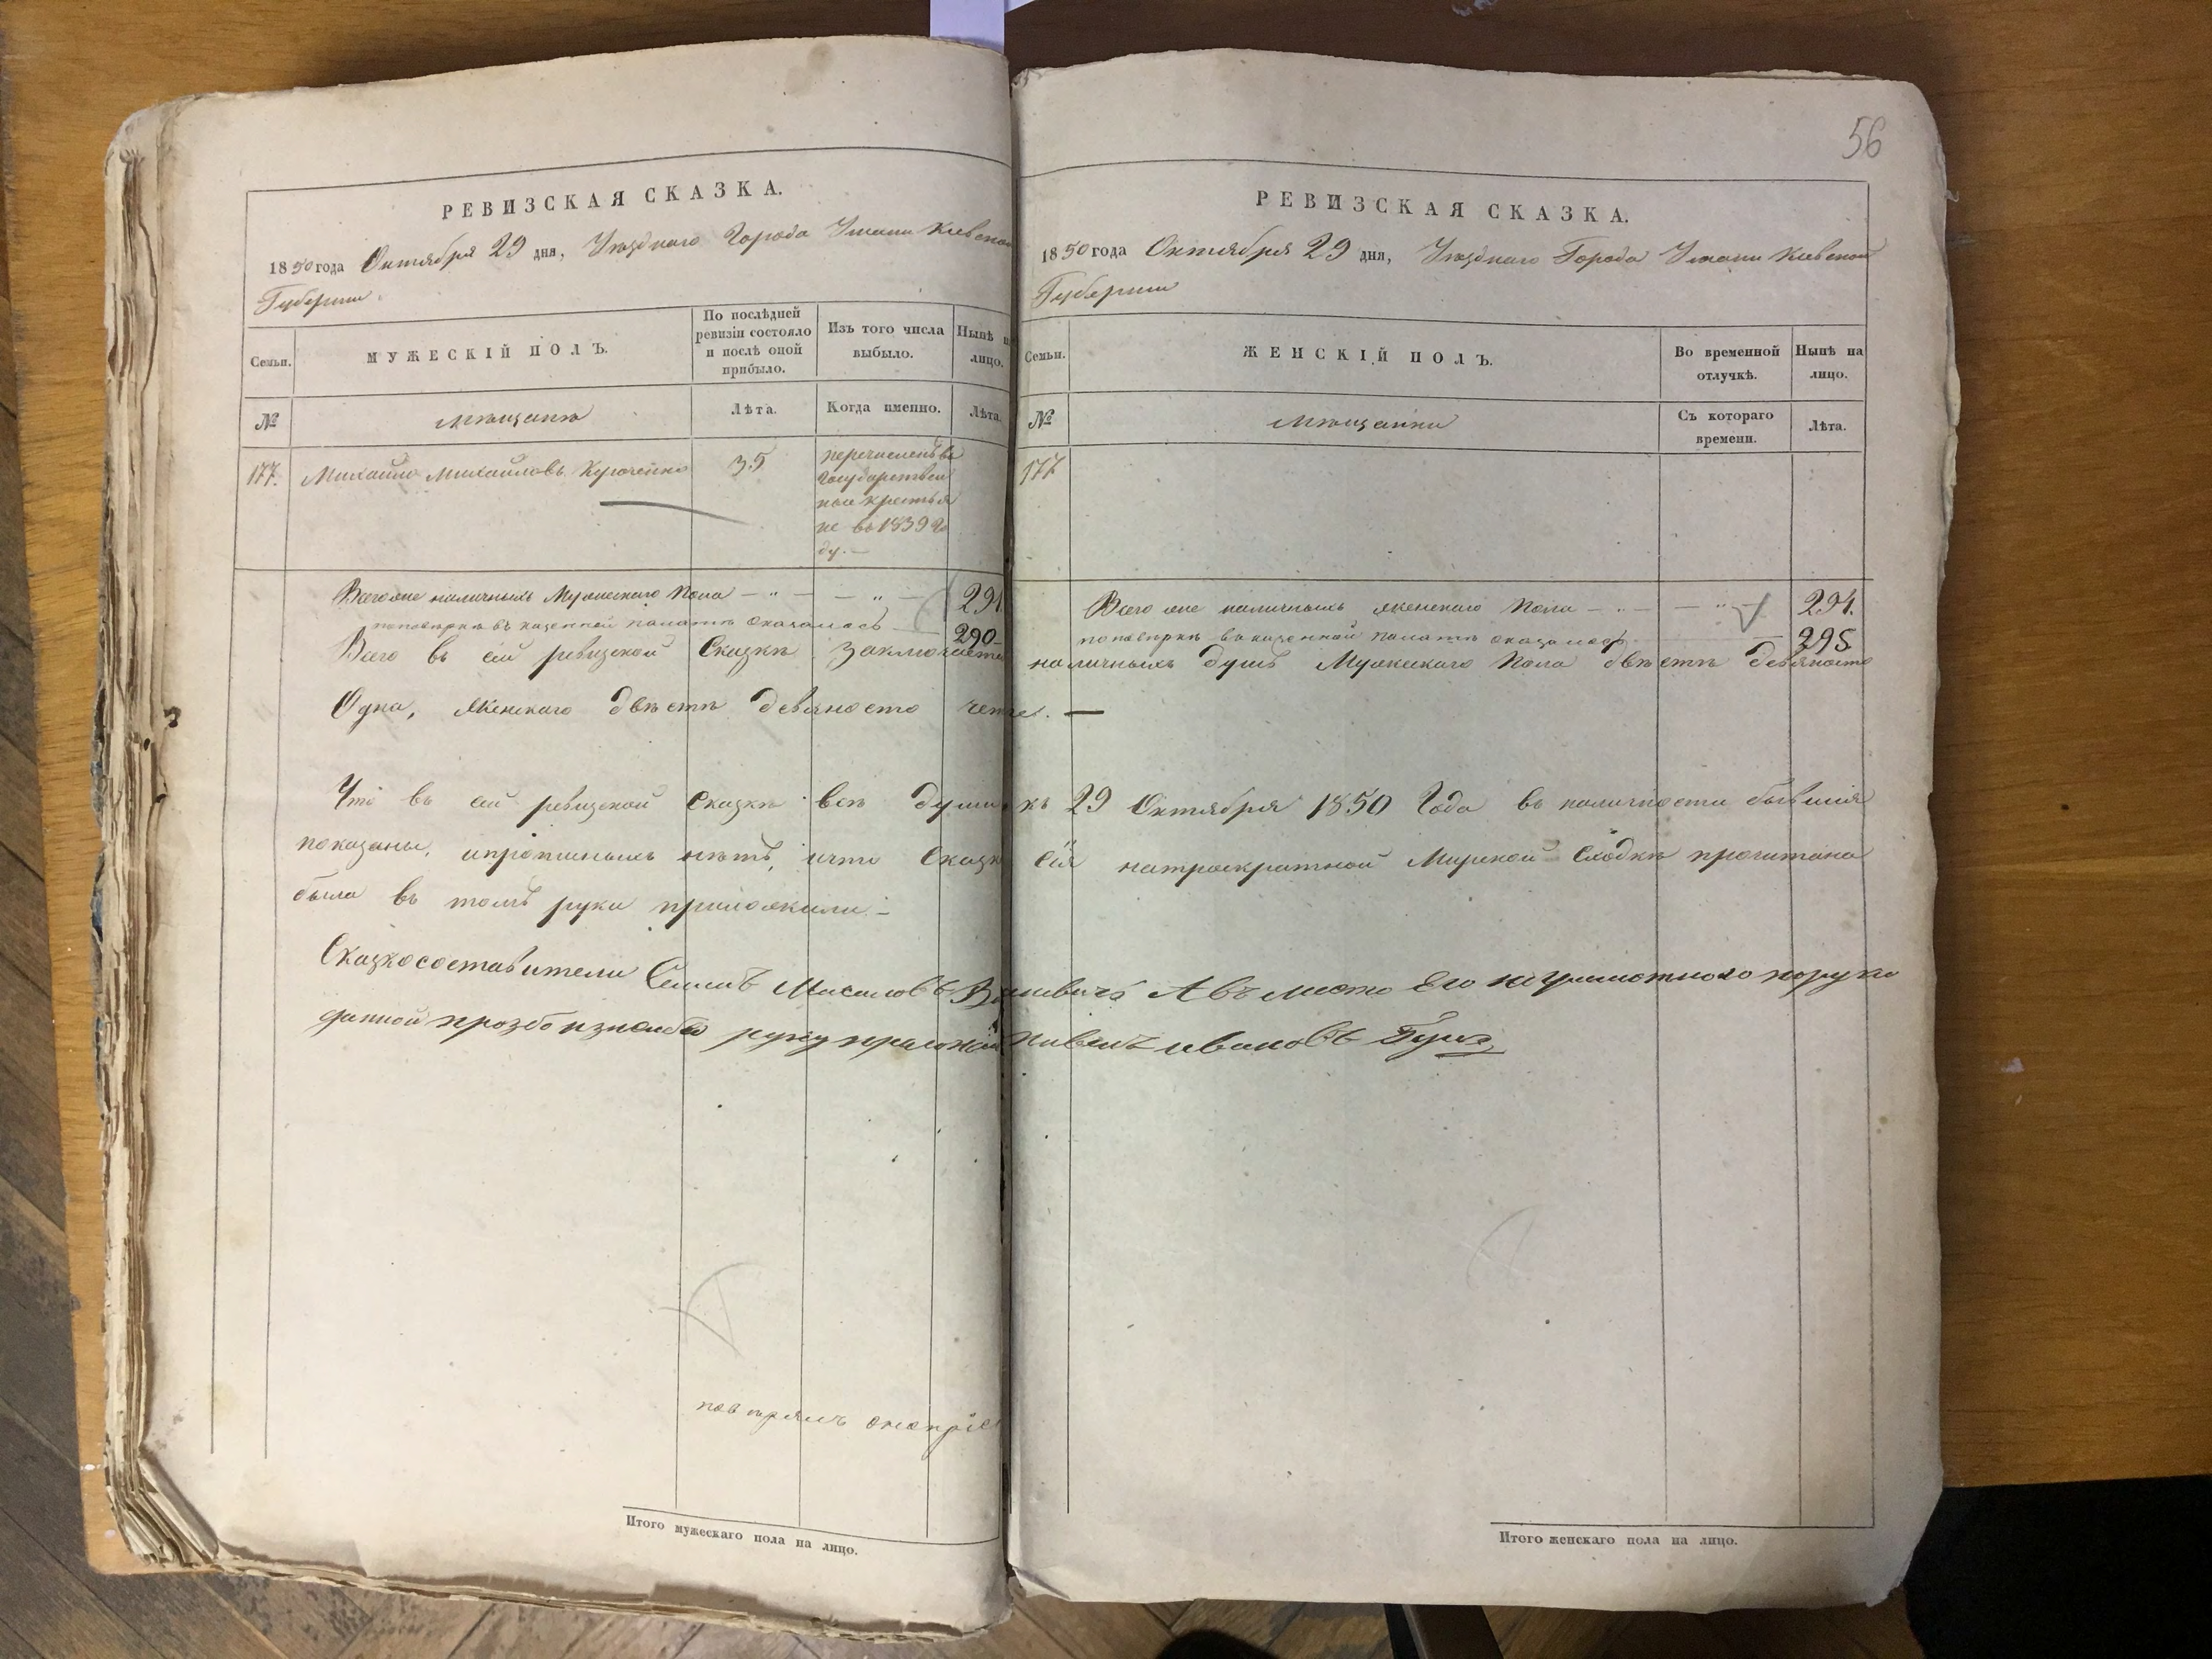 РЕВИЗСКАЯ СКАЗКА.
1850 года Октября 29 дня, Уѣзднаго Города Умани Кіевской
Губерніи
Семьи.
МУЖЕСКІЙ ПОЛЪ.
По послѣдней
ревизіи состояло
и послѣ оной
прибыло.
Изъ того числа
выбыло.
Нынѣ н
лицо.
№
мѣщане
Лѣта.
Когда именно.
Лѣта.
177.
Михайло Михайловъ
35
перечисленъ въ
государствен
ные крестья
не въ 1839 го
ду. —
Всего же наличныхъ Мужескаго Пола — „ — — „ — 291
по повѣркѣ въ казенной палатѣ оказалось — 290
56
РЕВИЗСКАЯ СКАЗКА.
1850 года Октября 29 дня, Уѣзднаго Города Умани Кіевской
Губерніи
Семьи.
ЖЕНСКІЙ ПОЛЪ.
Во временной
отлучкѣ.
Нынѣ на
лицо.
№
мѣщанки
Съ котораго
времени.
Лѣта.
177
Всего же наличныхъ женскаго Пола — „ — — „ — 294.
по повѣркѣ въ казенной палатѣ оказалось — 295
Всего въ сей ревизской Сказкѣ заключается наличныхъ душъ Мужескаго Пола двѣстѣ девяносто
Одна, Женскаго двѣстѣ девяносто четыре. —
Что въ сей ревизской Сказкѣ всѣ души къ 29 Октября 1850 Года въ наличности бывшія
показаны, ипрописныхъ нѣтъ, ичто Сказка Сія натроекратной Мирской Сходкѣ прочитана
была въ томъ руки приложили. —
Сказкосоставители Семенъ Авъместо Его неграмотного поруко
данной прозбо руку приложилъ Павелъ ивановъ
Итого мужескаго пола на лицо.
Итого женскаго пола на лицо.